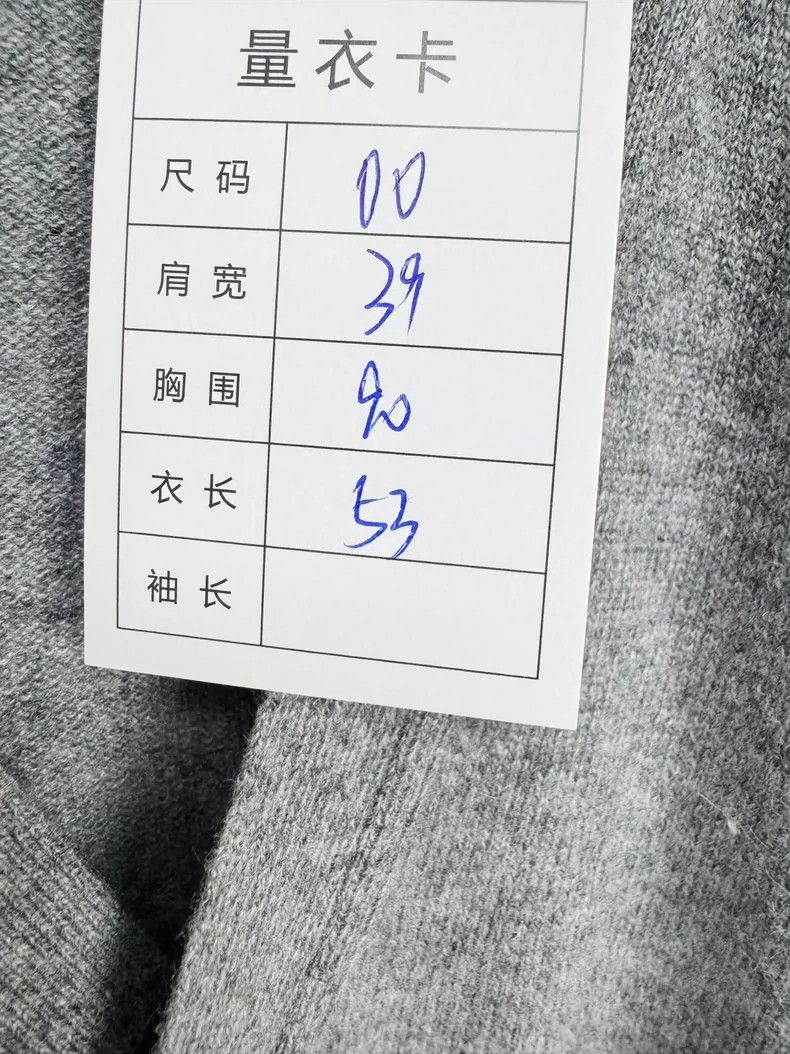 量衣卡
尺码 00
肩宽 39
胸围 90
衣长 53
袖长